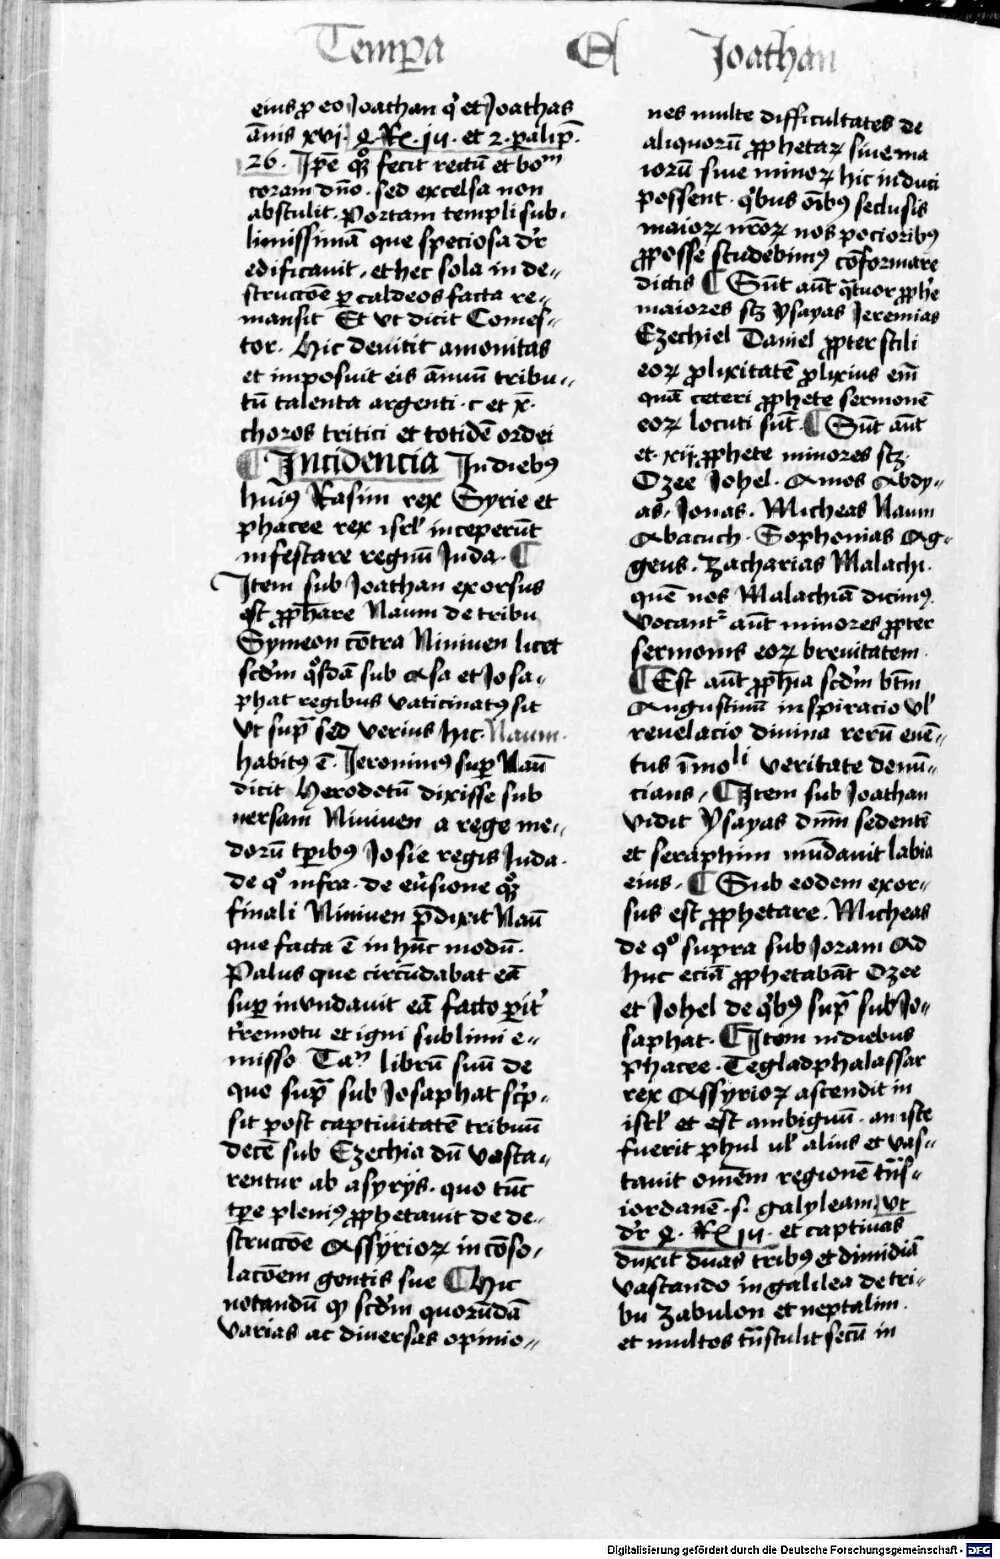 Temp̲a Et Joathan
eius p̲ eo Joathan qͥ et Joathas
ānis xvj. 4. Re. 15. et 2. p̲alip̄.
26. Ip̄e qͦꝫ fecit rectū et boᵐ
coram dn̄o. sed excelsa non
abstulit. Portam templi sub-
limissimā que speciosa dr̄
edificauit, et hec sola in de-
struccōe p̲ caldeos facta re-
mansit Et vt dicit Comes-
tor. Hic deuicit amonitas
et imposuit eis ānuū tribu-
tū talenta argenti. c et x̄.
choros tritici et totidē ordei
¶ Incidencia In diebꝰ
huiꝰ Rasim rex Syrie et
phacee rex isrl̄ inceperūt
infestare regnū Juda. ¶
Item sub Joathan exorsus
est ꝓph̄are Naum de tribu
Symeon cōtra Niniuen licet
scd̄m qͦsdā sub Asa et Josa-
phat regibus vaticinatꝰ sit
vt supᷓ sed verius hic. Naum.
habitꝰ ē. Jeronimꝰ sup̲ Naū
dicit Herodotū dixisse sub
uersam Niniuen a rege me-
dorū tp̄ibꝰ Josie regis Juda.
de qͦ infra. de eu̕sione qͦꝫ
finali Niniuen p̄dixit Naū
que facta ē in hūc modū.
Palus que circūdabat eā
sup̲ inundauit eā facto p̲it̕
t̕remotu et igni sublimi e-
misso Taⁿ librū suū de
quo supᷓ sub Josaphat sc̕p-
sit post captiuitatē tribuū
decē sub Ezechia dū vasta-
rentur ab asyrijs. quo tūc
tp̄e pleniꝰ ꝓphetauit de de-
struccōe Assyrioꝝ in cōso-
lacōem gentis sue ¶ Hic
notandū ꝙ scd̄m quorūdā
varias ac diuersas opinio-
nes multe difficultates de
aliquorū ꝓphetaꝝ siue ma
iorū siue minoꝝ hic induci
possent. qͥbus oībꝰ seclusis
maioꝝ nr̄oꝝ nos pocioribꝰ
ꝓ posse studebimꝰ cōformare
dictis ¶ Sūt aūt qᷓtuor ꝓph̄e
maiores scꝫ Ysayas Jeremias
Ezechiel Daniel ꝓpter stili
eoꝝ ꝓlixitatē ꝓlixius em̄
quā ceteri ꝓphete sermonē
eoꝝ locuti sūt. ¶ Sūt aūt
et. xij. ꝓphete minores scꝫ.
Ozee Johel. Amos Abdy-
as. Jonas. Micheas Naum
Abacuch. Sophonias Ag-
geus. Zacharias Malachi.
quē nos Malachiā dicimꝰ.
Vocantᷣ aūt minores ꝓpter
sermonis eoꝝ breuitatem.
¶ Est aūt ꝓph̄ia scd̄m bt̄m
Augustinū inspiracio vl̕
reuelacio diuina rerū euē-
tus īmoˡⁱ veritate denū-
cians. ¶ Item sub Joathan
vidit Ysayas dn̄m sedentē
et seraphim mūdauit labia
eius. ¶ Sub eodem exor-
sus est ꝓphetare. Micheas
de qͦ supra sub Joram Ad
huc eciā ꝓphetabāt Ozee
et Johel de qͥbꝰ supᷓ sub Jo-
saphat. ¶ Item in diebus
phacee. Teglad phalassar
rex Assyrioꝝ ascendit in
isrl̄ et est ambiguū. an iste
fuerit phul ul̕ alius et vas-
tauit omēm regionē tᷓns-
iordanē. s. galyleam, vt
dr̄ 4. Re 15. et captiuas
duxit duas tribꝰ et dimidiā
vastando in galilea de tri-
bu Zabulon et neptalim.
et multos tᷓnstulit secū in
Digitalisierung gefördert durch die Deutsche Forschungsgemeinschaft - DFG